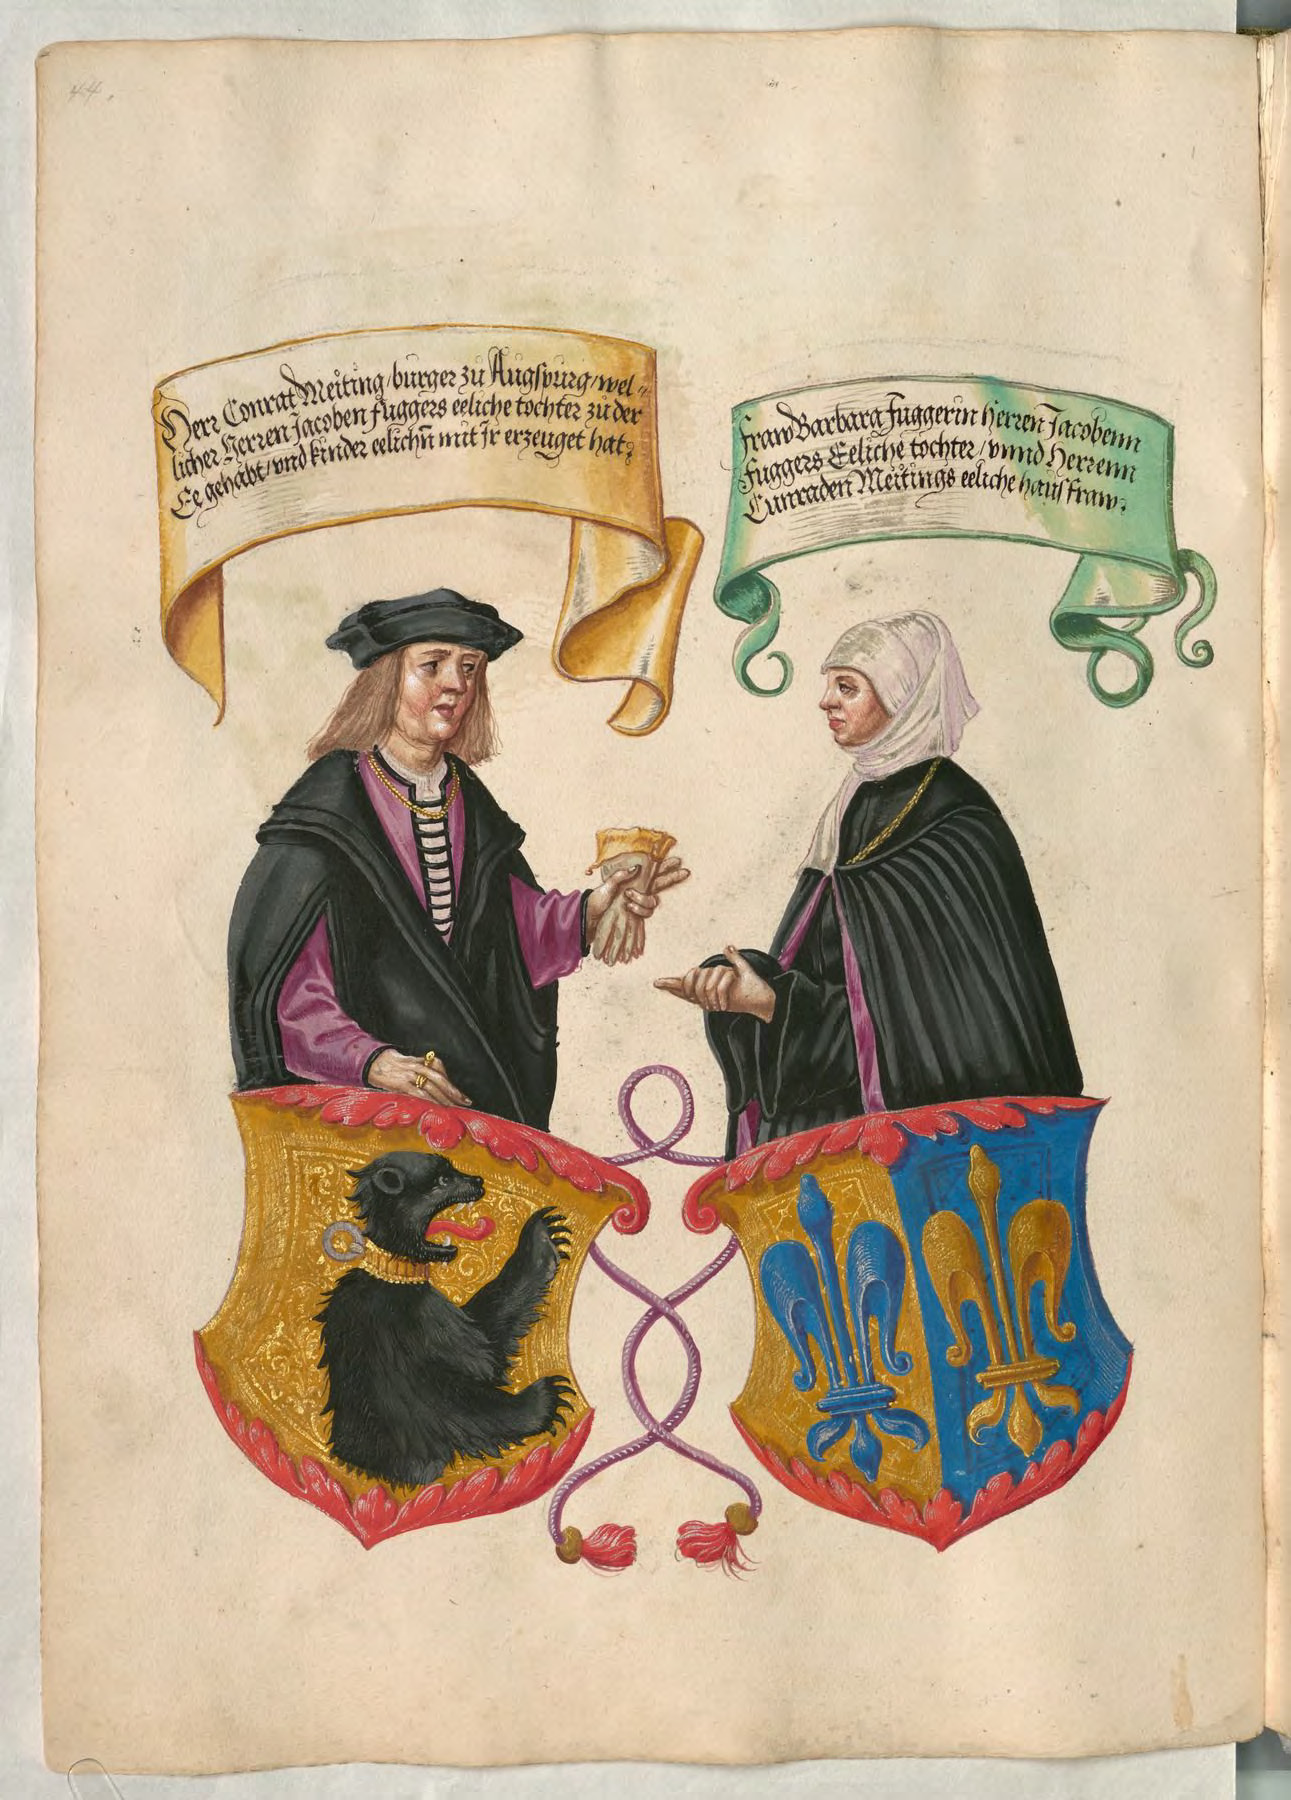 44.
Herr Conrat Meiting / burger zu Augspurg / wel-
licher Herren Jacoben fuggers eeliche tochter zu der
Ee gehabt / vnd kinder eelichn̄ mit Jr erzeuget hat.
fraw Barbara Fuggerin Herren Jacobenn
Fuggers Eeliche tochter / vnnd Herrenn
Cunraden Meitings eeliche hausfraw.